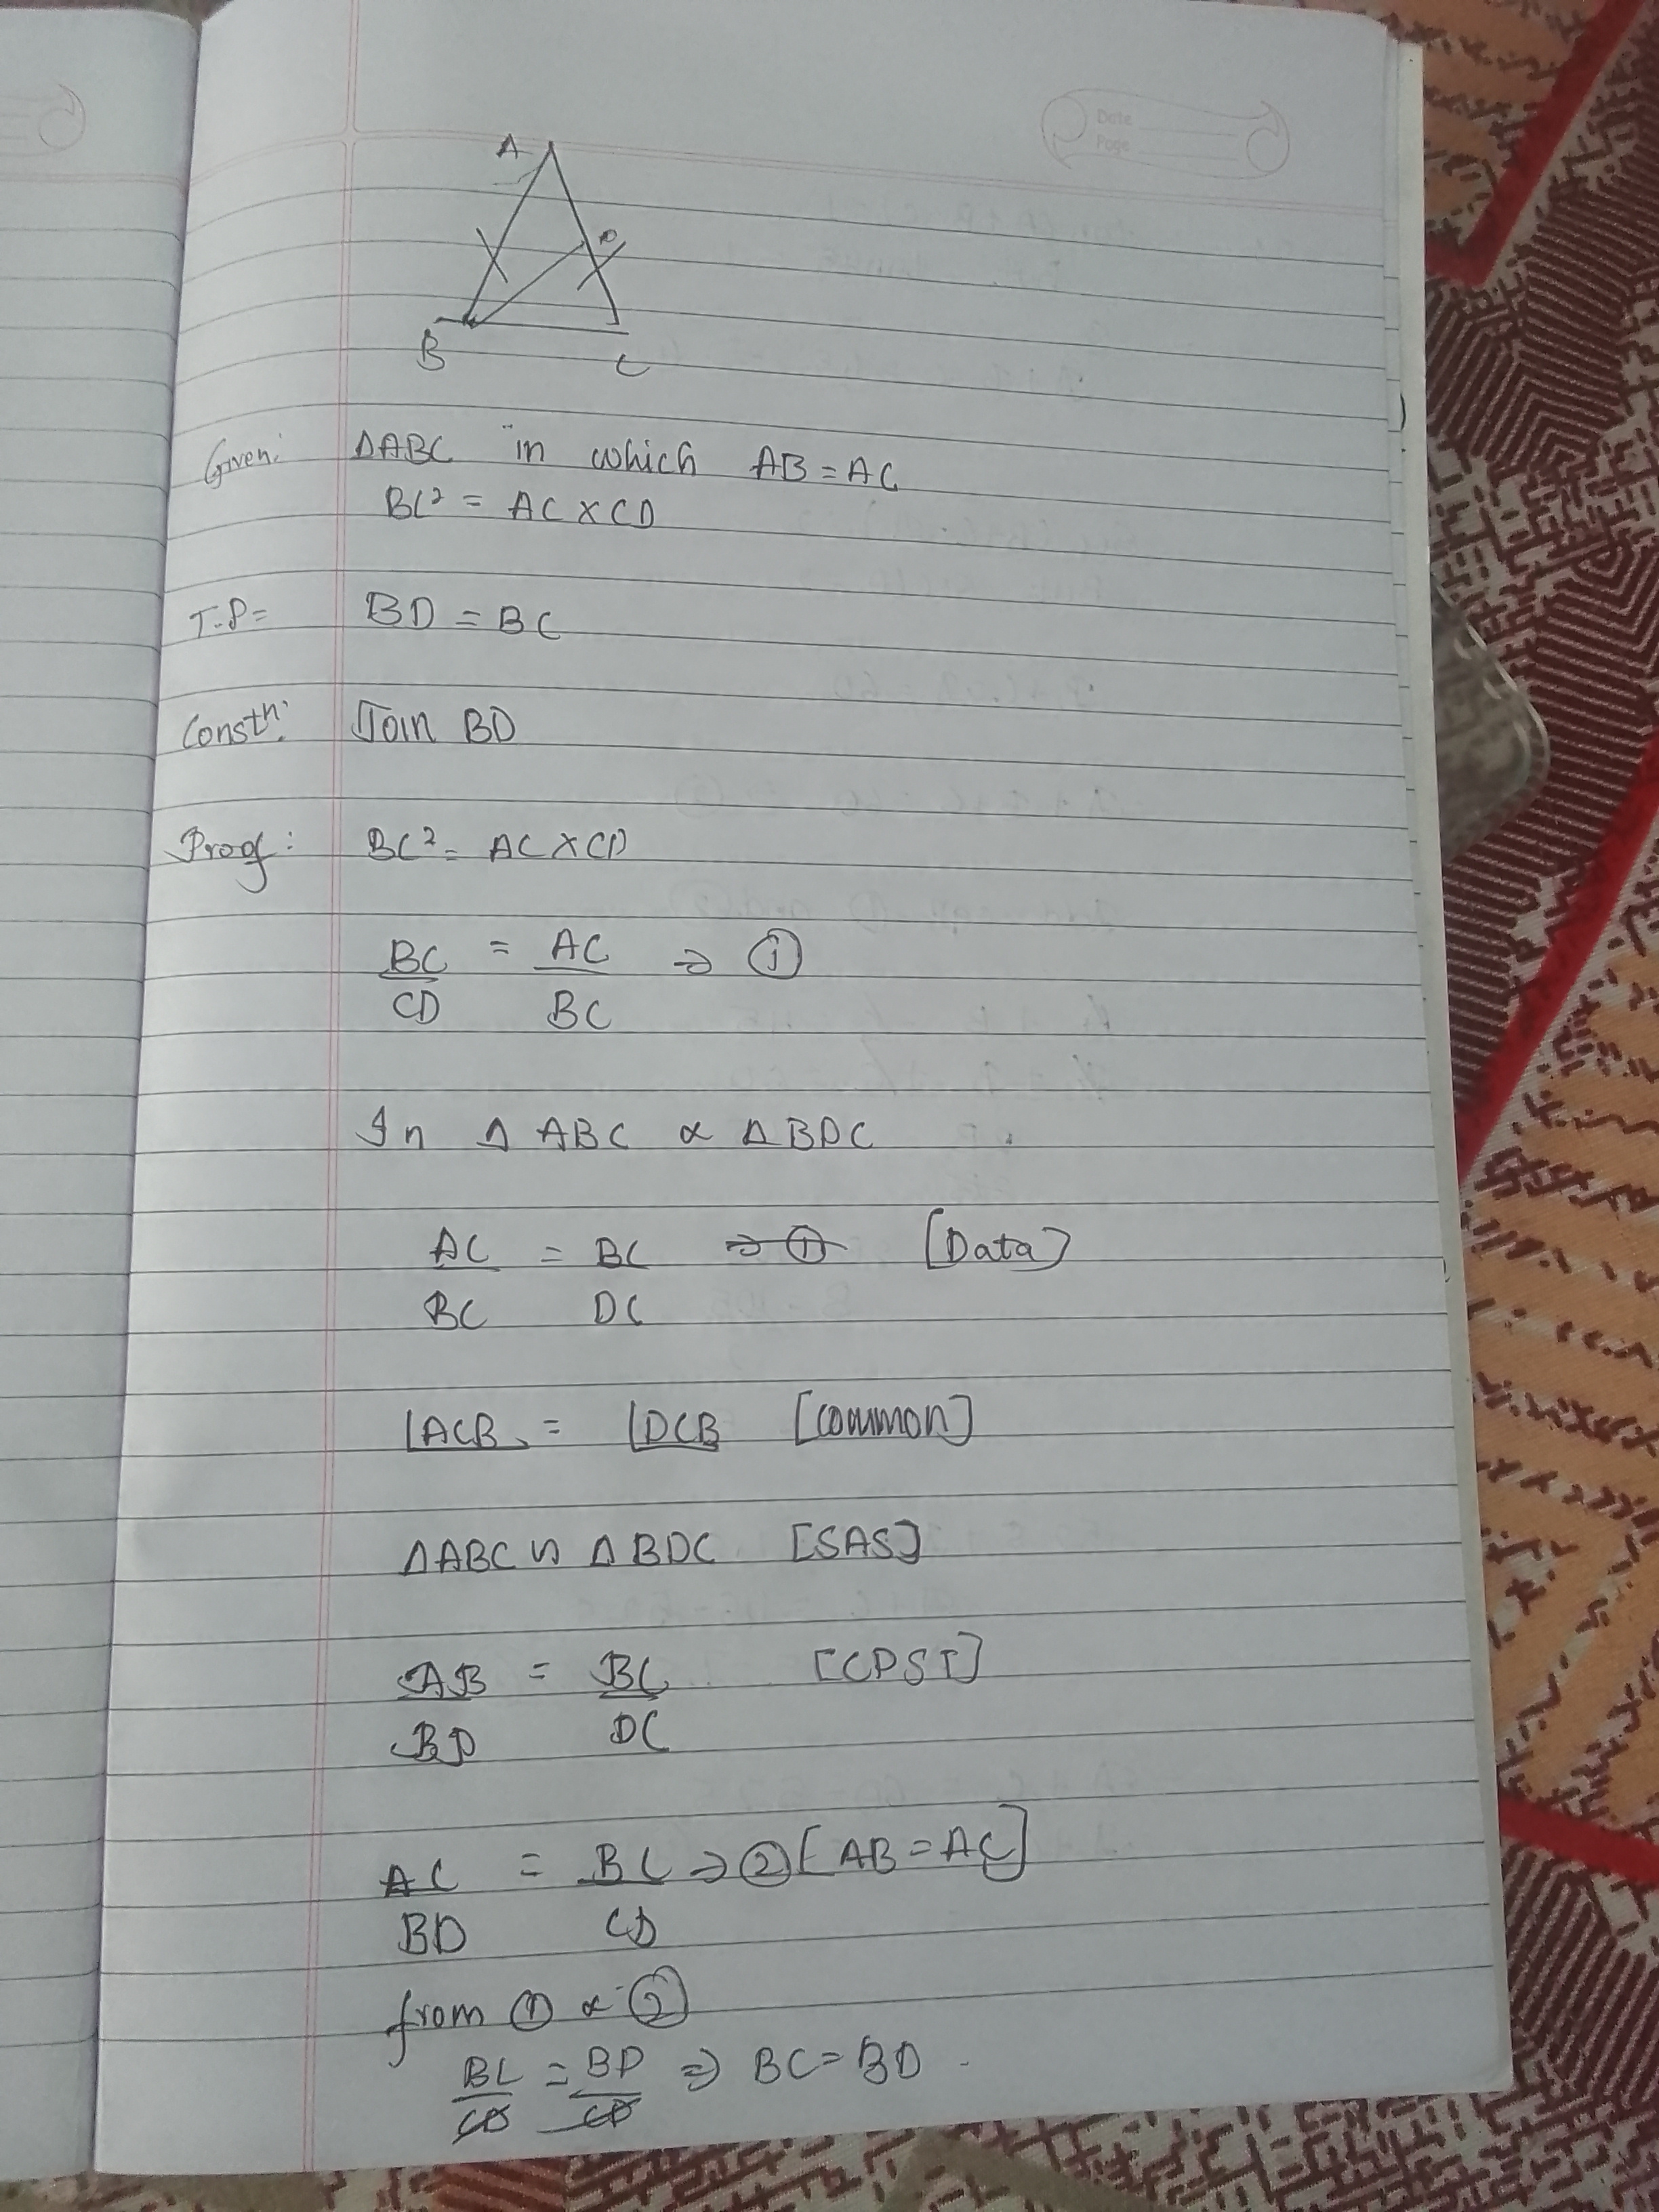 Date
Page
A
D
B
C
Given: ΔABC in which AB = AC
BC² = AC × CD
T.P = BD = BC
Constn: Join BD
Proof: BC² = AC × CD
BC/CD = AC/BC ⇒ ①
In Δ ABC & Δ BDC
AC/BC = BC/DC ⇒ ① [Data]
∠ACB = ∠DCB [common]
ΔABC ∽ ΔBDC [SAS]
AB/BD = BC/DC [CPST]
AC/BD = BC/CD ⇒ ② [AB = AC]
from ① & ②
BC/CD = BD/CD ⇒ BC = BD